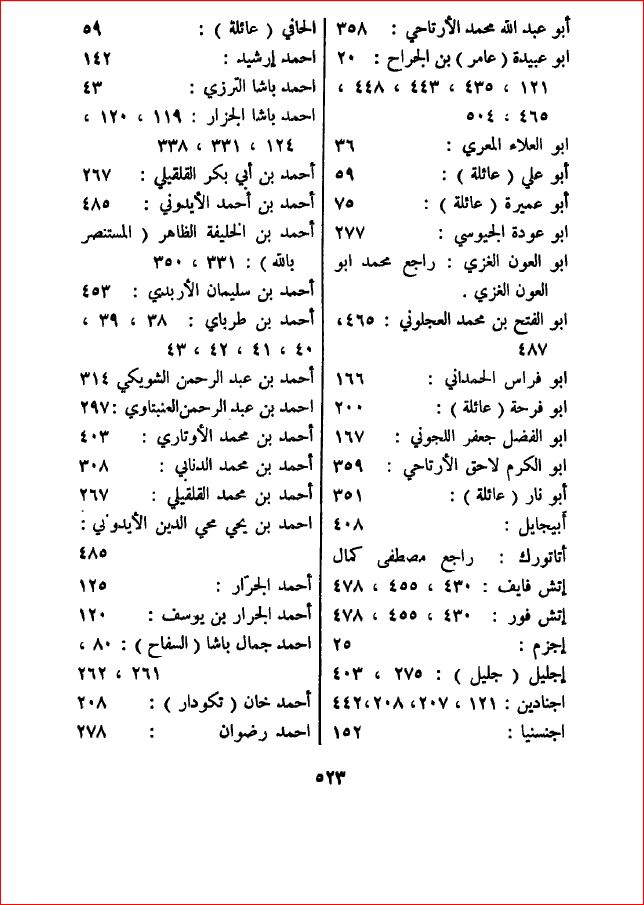 أبو عبد الله محمد الأرتاحي : ٣٥٨
ابو عبيدة ( عامر ) بن الجراح : ٢٠
١٢١ ، ٤٣٥ ، ٤٤٣ ، ٤٤٨ ،
٤٦٥ ، ٥٠٤
ابو العلاء المعري : ٣٦
أبو علي ( عائلة ) : ٥٩
أبو عميرة ( عائلة ) : ٧٥
ابو عودة الجيوسي : ٢٧٧
ابو العون الغزي : راجع محمد ابو
العون الغزي .
ابو الفتح بن محمد العجلوني : ٤٦٥،
٤٨٧
ابو فراس الحمداني : ١٦٦
ابو فرحة ( عائلة ) : ٢٠٠
ابو الفضل جعفر اللجوني : ١٦٧
ابو الكرم لاحق الأرتاحي : ٣٥٩
أبو نار ( عائلة ) : ٣٥١
أبيجايل : ٤٠٨
أتاتورك : راجع مصطفى كمال
إتش فايف : ٤٣٠ ، ٤٥٥ ، ٤٧٨
إتش فور : ٤٣٠ ، ٤٥٥ ، ٤٧٨
إجزم : ٢٥
إجليل ( جليل ) : ٢٧٥ ، ٤٠٣
اجنادين : ١٢١ ، ٢٠٧، ٢٠٨، ٤٤٢
اجنسنيا : ١٥٢
الحافي ( عائلة ) : ٥٩
احمد إرشيد : ١٤٢
احمد باشا الترزي : ٤٣
احمد باشا الجزار : ١١٩ ، ١٢٠ ،
١٢٤ ، ٣٣١ ، ٣٣٨
أحمد بن أبي بكر القلقيلي : ٢٦٧
أحمد بن أحمد الأيدوني : ٤٨٥
أحمد بن الخليفة الظاهر ( المستنصر
بالله ) : ٣٣١ ، ٣٥٠
أحمد بن سليمان الأربدي : ٤٥٣
أحمد بن طرباي : ٣٨ ، ٣٩ ،
٤٠ ، ٤١ ، ٤٢ ، ٤٣
أحمد بن عبد الرحمن الشويكي ٣١٤
احمد بن عبد الرحمن العنبتاوي : ٢٩٧
أحمد بن محمد الأوتاري : ٤٠٣
أحمد بن محمد الدنابي : ٣٠٨
أحمد بن محمد القلقيلي : ٢٦٧
احمد بن يحي محي الدين الأيدوني :
٤٨٥
أحمد الجرّار : ١٢٥
أحمد الجرار بن يوسف : ١٢٠
احمد جمال باشا ( السفاح ) : ٨٠ ،
٢٦١ ، ٢٦٢
أحمد خان ( تكودار ) : ٢٠٨
احمد رضوان : ٢٧٨
٥٢٣